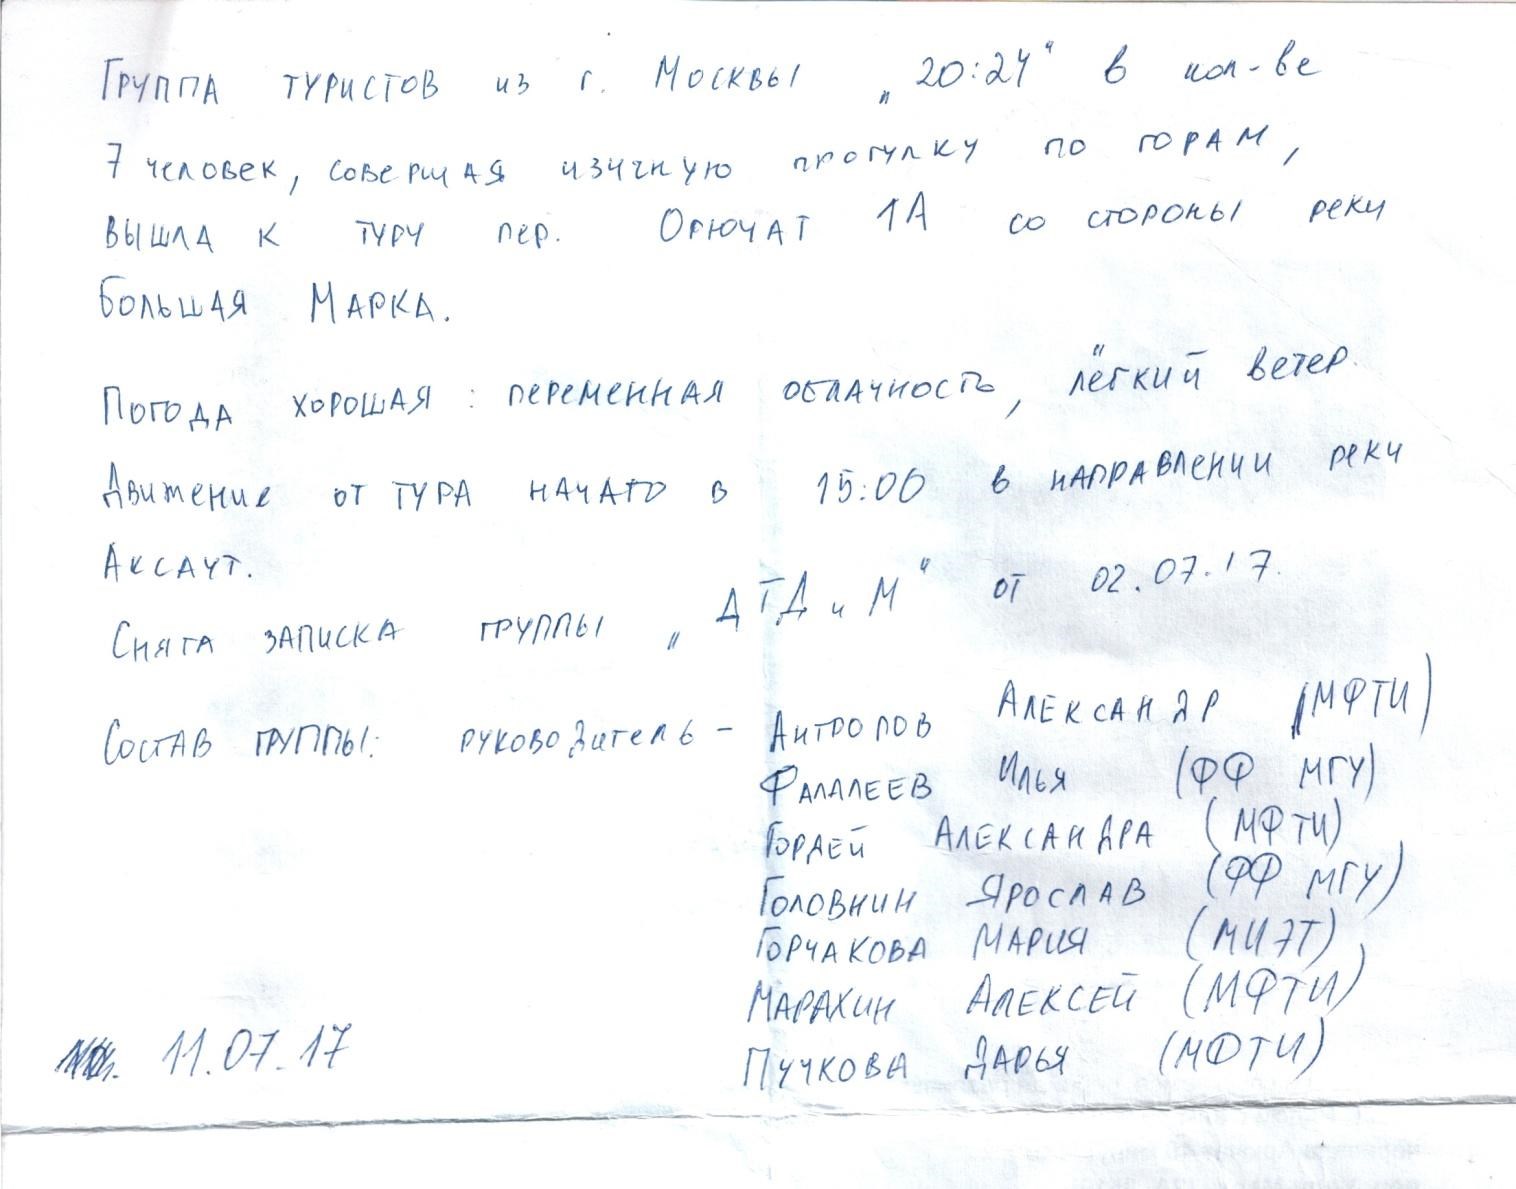 Группа туристов из г. Москвы „20:24“ в кол-ве
7 человек, совершая изячную прогулку по горам,
вышла к туру пер. Орлючат 1А со стороны реки
Большая Марка.
Погода хорошая: переменная облачность, лёгкий ветер.
Движение от тура начато в 15:00 в направлении реки
Аксаут.
Снята записка группы „ДТД и М“ от 02.07.17.
Состав группы: руководитель – Антропов Александр (МФТИ)
Фалалеев Илья (ФФ МГУ)
Гордей Александра (МФТИ)
Головнин Ярослав (ФФ МГУ)
Горчакова Мария (МИЭТ)
Марахин Алексей (МФТИ)
Пучкова Дарья (МФТИ)
11.07.17